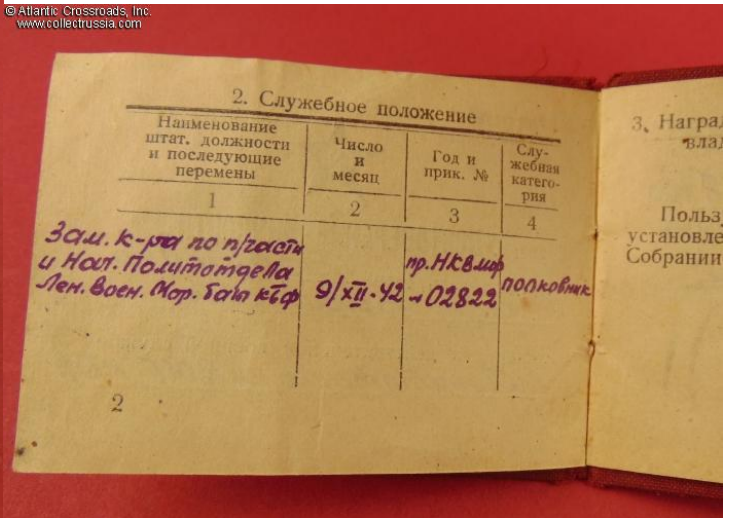 © Atlantic Crossroads, Inc.
www.collectrussia.com
2. Служебное положение
Наименование
штат. должности
и последующие
перемены
Число
и
месяц
Год и
прик. №
Слу-
жебная
катего-
рия
1
2
3
4
Зам. к-ра по п/части
и Нач. Политотдела
Лен. Воен. Мор. баз КБФ
9/XII-42
пр. НКВМФ
02822
полковник
2
3. Наград
влад
Польз
установле
Собрании